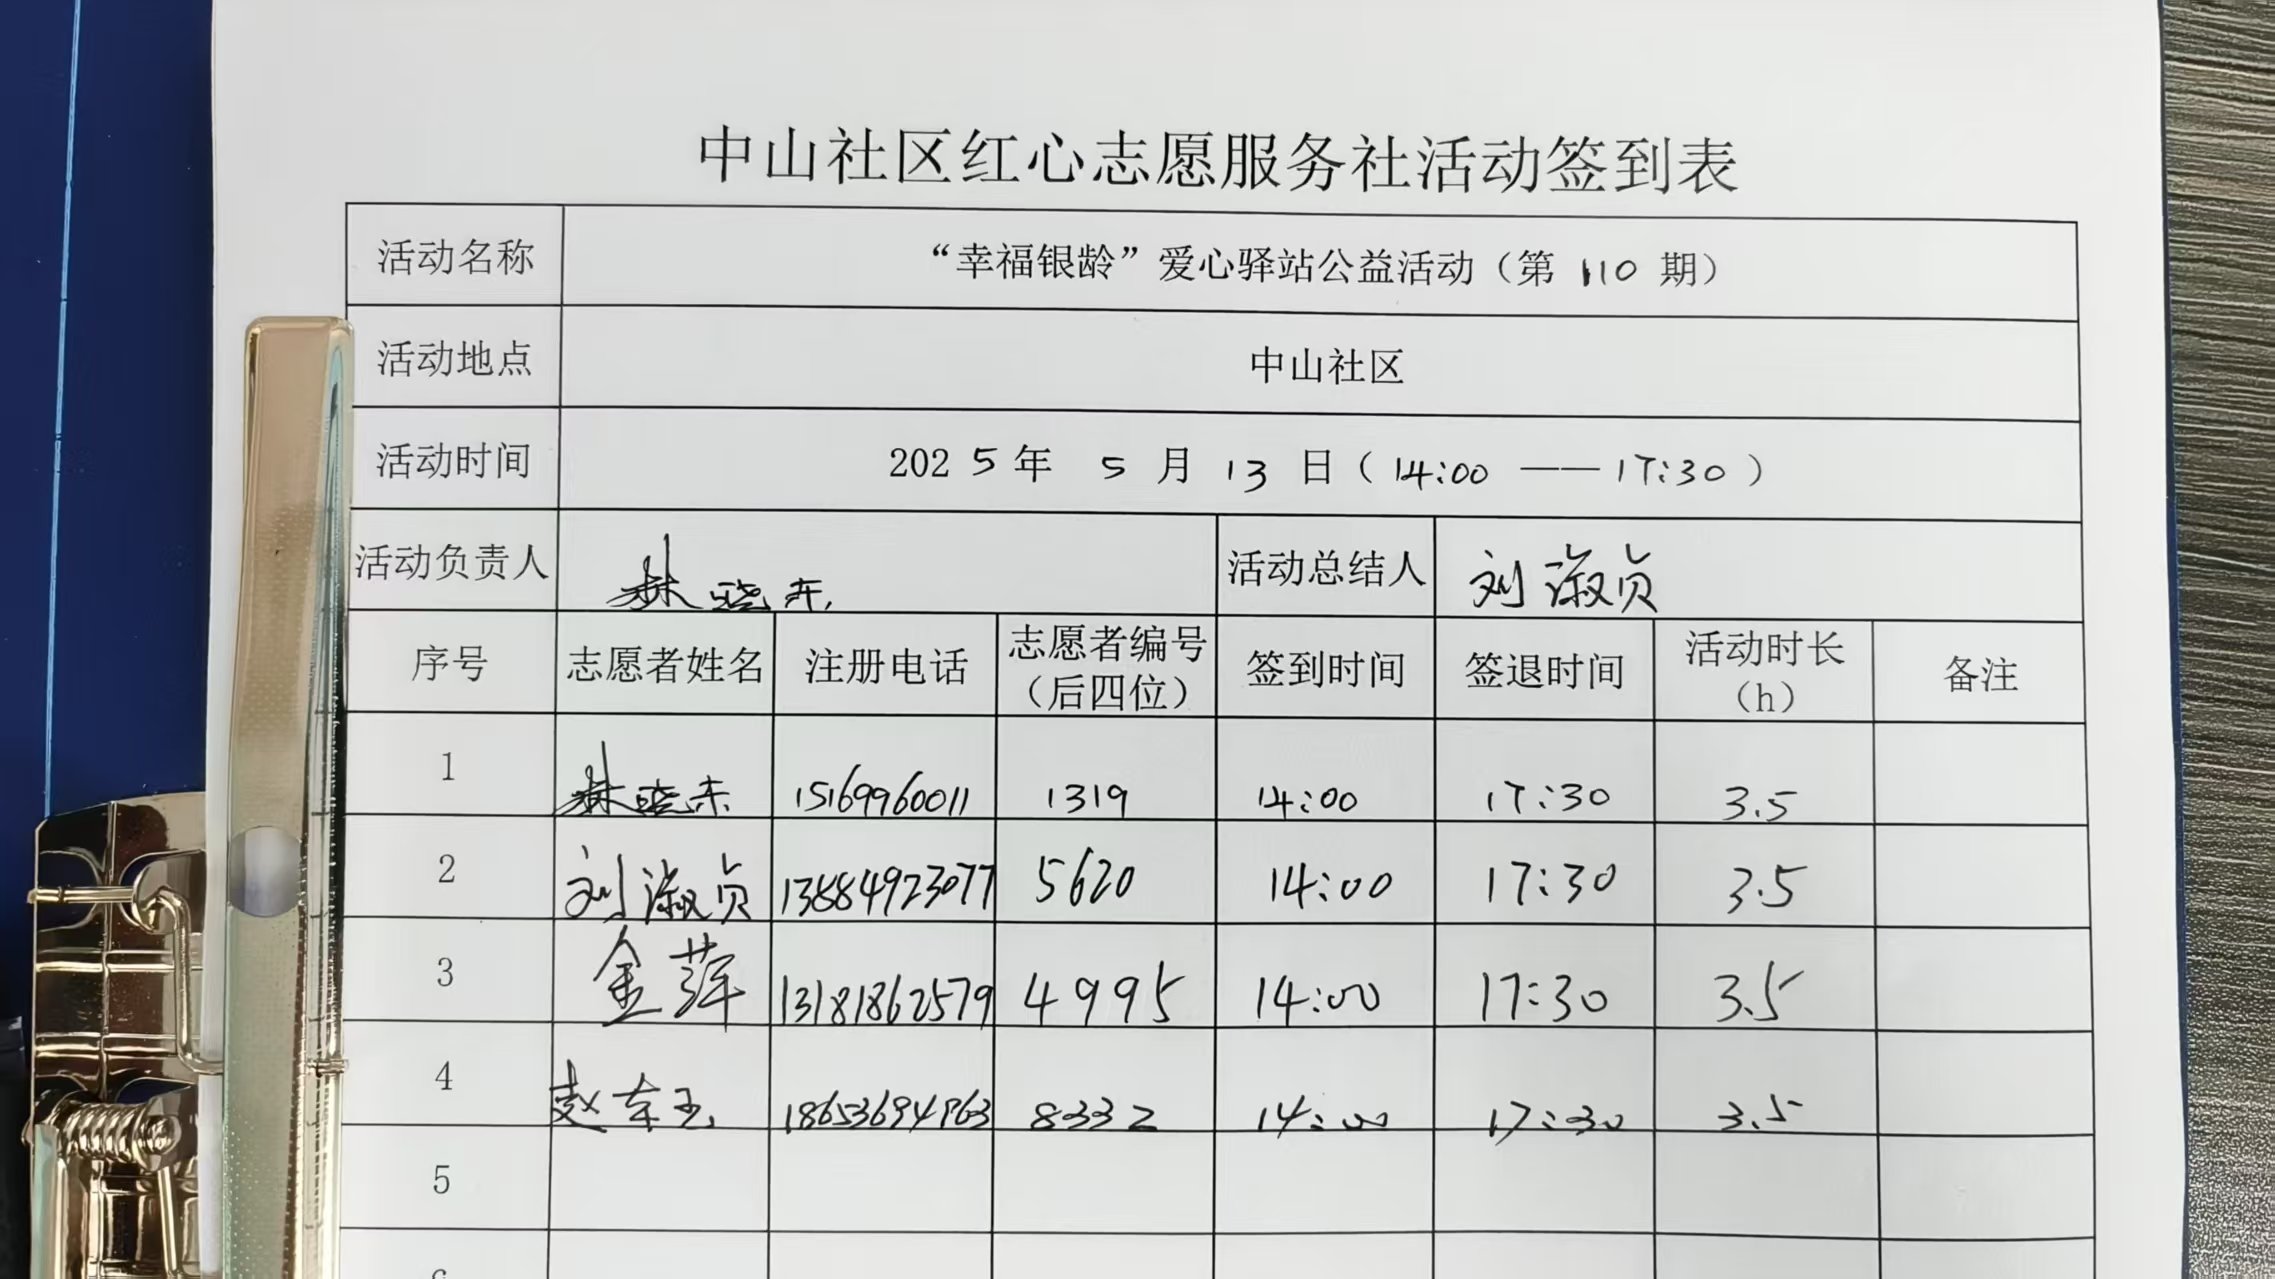 中山社区红心志愿服务社活动签到表
活动名称 “幸福银龄”爱心驿站公益活动（第 110 期）
活动地点 中山社区
活动时间 2025年 5 月 13 日（14:00 —— 17:30）
活动负责人 林晓东 活动总结人 刘淑贞
序号 志愿者姓名 注册电话 志愿者编号（后四位） 签到时间 签退时间 活动时长（h） 备注
1 林晓东 15169960011 1319 14:00 17:30 3.5
2 刘淑贞 13884923077 5620 14:00 17:30 3.5
3 金萍 13181862579 4995 14:00 17:30 3.5
4 赵东玉 8332 14:00 17:30 3.5
5